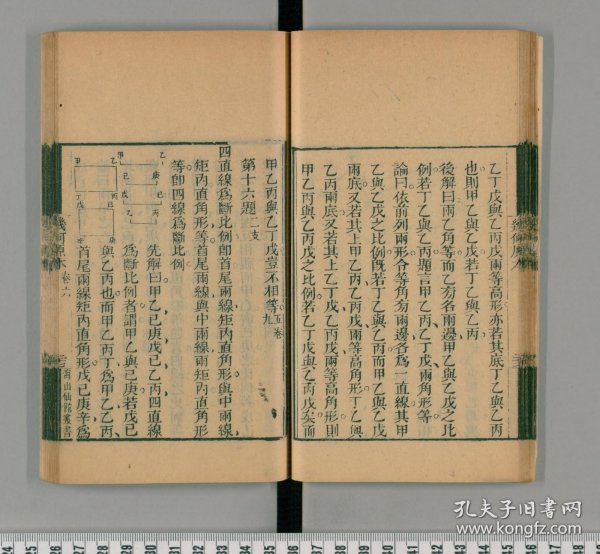 乙丁戊與乙丙戊兩等高形亦若其底丁乙與乙丙
也則甲乙與乙戊若丁乙與乙丙
後解曰兩乙角等而乙旁各兩邊甲乙與乙戊之比
例若丁乙與乙丙題言甲乙丙乙丁戊兩角形等
論曰依前列兩形令等角旁兩邊各為一直線其甲
乙與乙戊之比例既若丁乙與乙丙而甲乙與乙戊
兩底又若其上甲乙丙乙丙戊兩等高角形丁乙與
乙丙兩底又若其上乙丁戊乙丙戊兩等高角形則
甲乙丙與乙丙戊之比例若乙丁戊與乙丙戊矣而
甲乙丙與乙丁戊豈不相等
五卷
九
第十六題
二支
四直線為斷比例即首尾兩線矩內直角形與中兩線
矩內直角形等首尾兩線與中兩線兩矩內直角形
等即四線為斷比例
先解曰甲乙己庚戊己乙丙四直線
為斷比例者謂甲乙與己庚若戊己
與乙丙也而甲乙丙丁為甲乙乙丙
首尾兩線矩內直角形戊己庚辛為
幾何原本 卷六
海山仙館叢書
孔夫子旧书网
www.kongfz.com
24
25
26
27
28
29
30
31
32
33
34
35
36
37
38
39
40
41
42
43
44
45
46
47
48